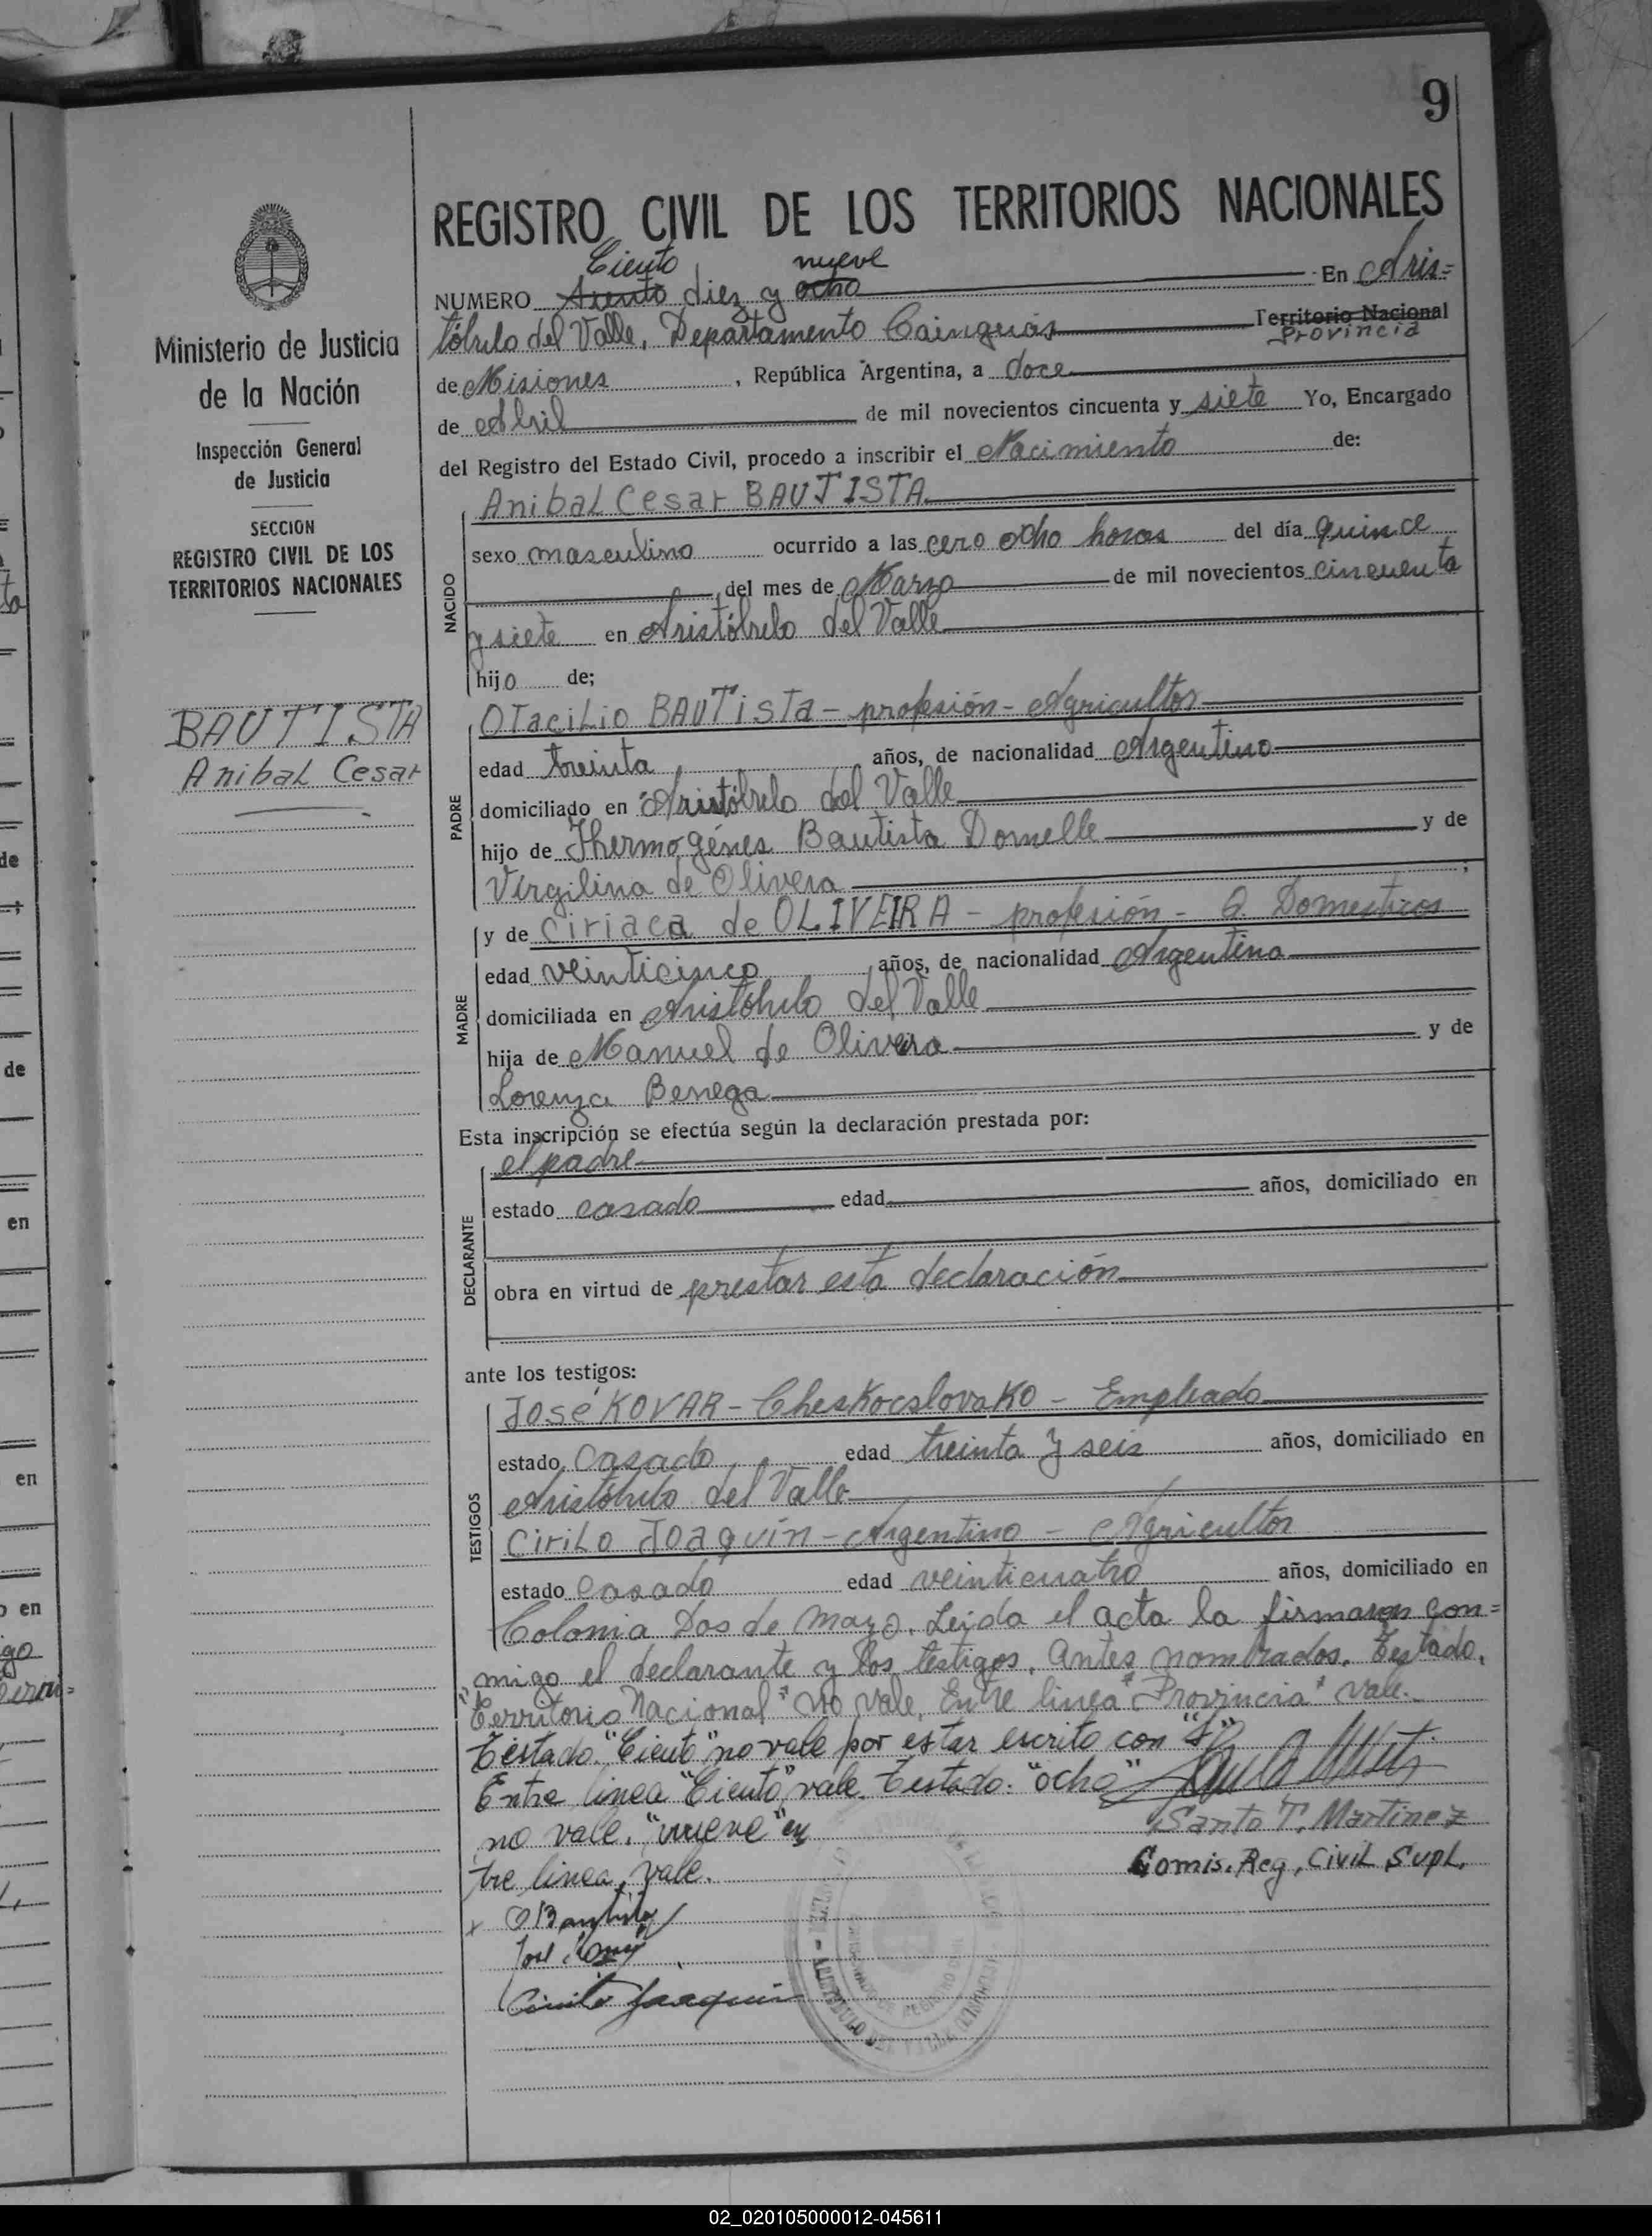 9
REGISTRO CIVIL DE LOS TERRITORIOS NACIONALES
Ministerio de Justicia
de la Nación
Inspección General
de Justicia
SECCION
REGISTRO CIVIL DE LOS
TERRITORIOS NACIONALES
BAUTISTA
Anibal Cesar
Ciento nueve
NUMERO Siento diez y ocho En Aris=
tóbulo del Valle, Departamento Cainguás Territorio Nacional
Provincia
de Misiones, República Argentina, a doce
de Abril de mil novecientos cincuenta y siete Yo, Encargado
del Registro del Estado Civil, procedo a inscribir el Nacimiento de:
NACIDO
Anibal Cesar BAUTISTA
sexo masculino ocurrido a las cero ocho horas del día quince
del mes de Marzo de mil novecientos cincuenta
y siete en Aristóbulo del Valle
hijo de;
PADRE
OTaciLio BAUTISTA - profesión - Agricultor
edad treinta años, de nacionalidad Argentino
domiciliado en Aristóbulo del Valle
hijo de Thermogénes Bautista Dornelle y de
Virgilina de Olivera ;
MADRE
y de Ciriaca de OLIVEIRA - profesión - Q. Domesticos
edad veinticinco años, de nacionalidad Argentina
domiciliada en Aristóbulo del Valle
hija de Manuel de Olivera y de
Lorenza Benega
Esta inscripción se efectúa según la declaración prestada por:
DECLARANTE
el padre
estado casado edad años, domiciliado en
obra en virtud de prestar esta declaración
ante los testigos:
TESTIGOS
José KOVAR - CheskocslovaKo - Empleado
estado casado edad treinta y seis años, domiciliado en
Aristóbulo del Valle
CiriLo Joaquín - Argentino - Agricultor
estado casado edad veinticuatro años, domiciliado en
Colonia Dos de Mayo. Leida el acta la firmaron con=
migo el declarante y los testigos. Antes nombrados. Testado,
"Territorio Nacional" No vale. Entre linea "Provincia" vale.
Testado. "Ciento" no vale por estar escrito con "S"
Entre linea "Ciento" vale. Testado: "ocho"
no vale. "nueve" en
tre linea, vale.
Santo T. Martinez
Comis. Reg, Civil Supl.
x OBautista
Cirilo Joaquin
02_020105000012-045611